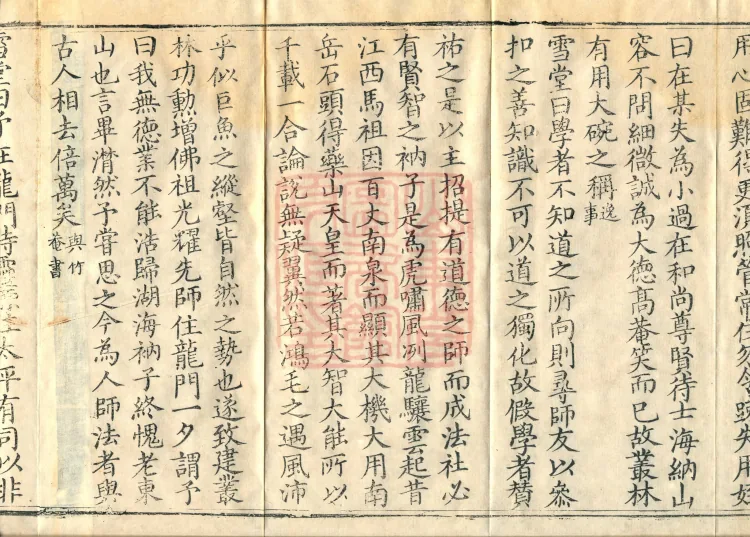 用心固難得更須照管常住勿令疎失用好
曰在某失為小過在和尚尊賢待士海納山
容不問細微誠為大德高菴笑而已故叢林
有用大碗之稱逸事
雪堂曰學者不知道之所向則尋師友以叅
扣之善知識不可以道之獨化故假學者賛
祐之是以主招提有道德之師而成法社必
有賢智之衲子是為虎嘯風冽龍驤雲起昔
江西馬祖因百丈南泉而顯其大機大用南
岳石頭得藥山天皇而著其大智大能所以
千載一合論說無疑翼然若鴻毛之遇風沛
乎似巨魚之縱壑皆自然之勢也遂致建叢
林功勳增佛祖光耀先師住龍門一夕謂予
曰我無德業不能浩歸湖海衲子終愧老東
山也言畢潸然予嘗思之今為人師法者與
古人相去倍萬矣與竹菴書
雪堂曰予在龍門時靈太平有司以非